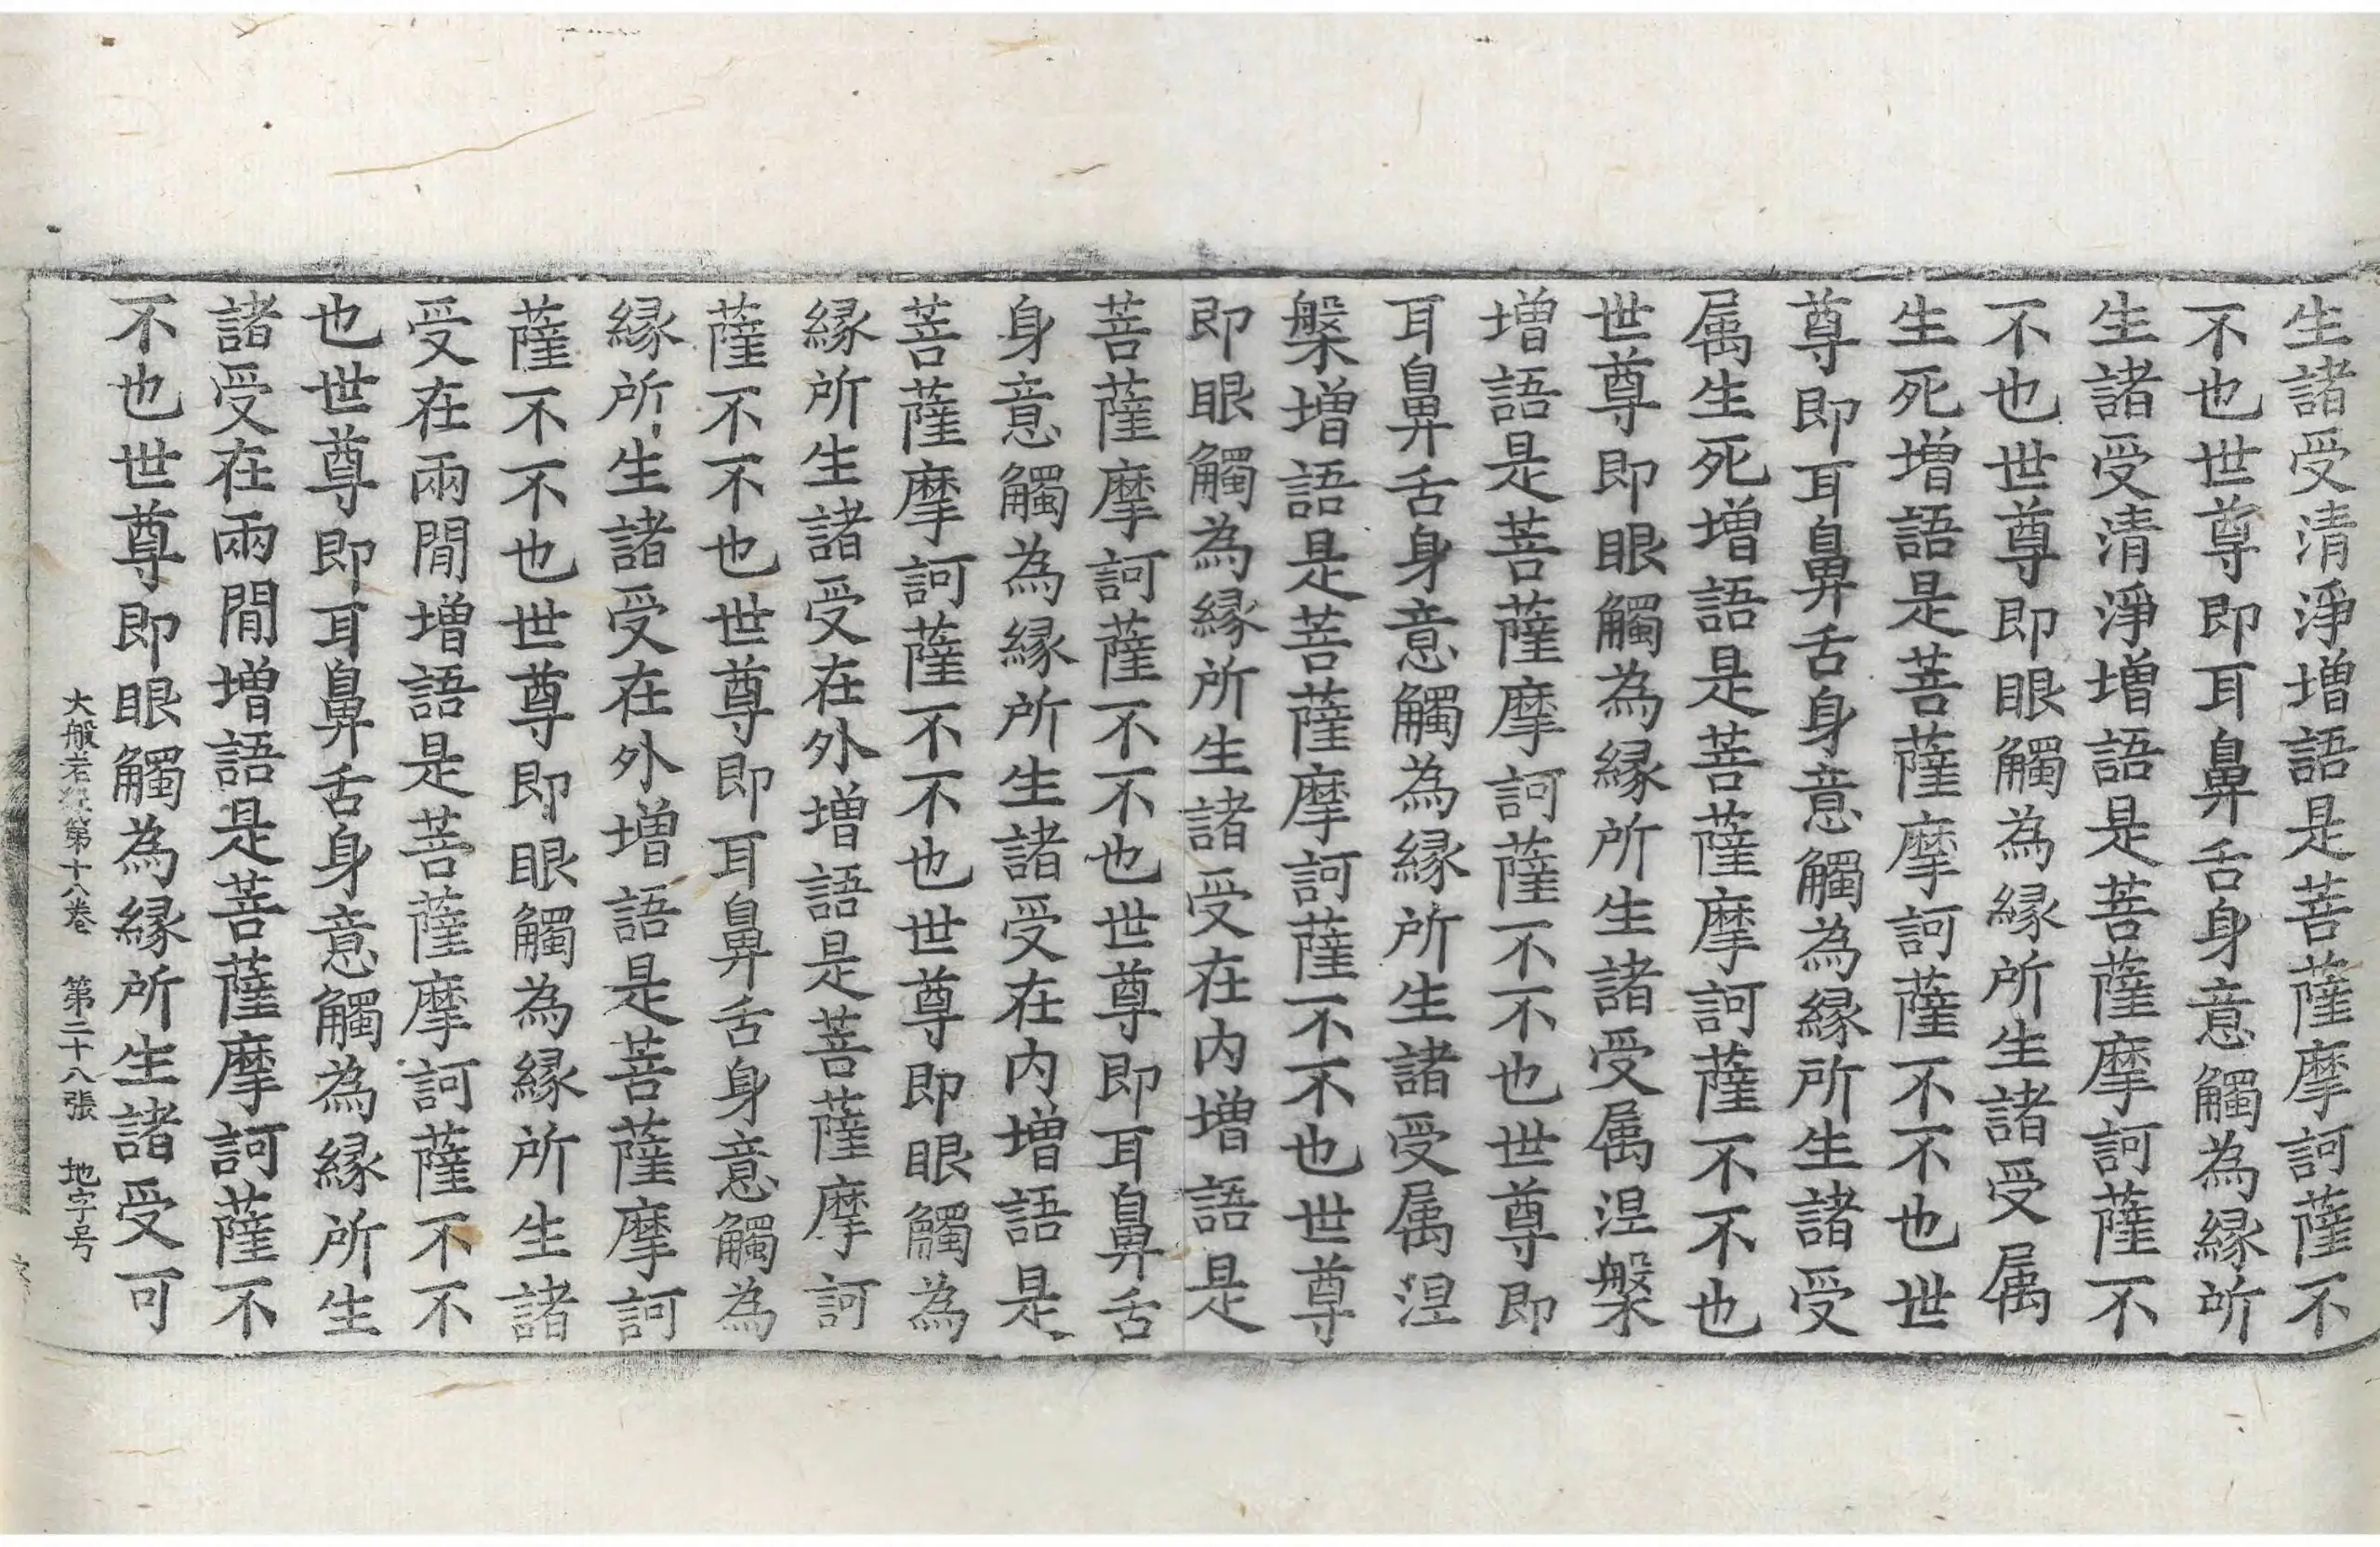 生諸受清淨增語是菩薩摩訶薩不
不也世尊即耳鼻舌身意觸為縁所
生諸受清淨增語是菩薩摩訶薩不
不也世尊即眼觸為縁所生諸受属
生死增語是菩薩摩訶薩不不也世
尊即耳鼻舌身意觸為縁所生諸受
属生死增語是菩薩摩訶薩不不也
世尊即眼觸為縁所生諸受属涅槃
增語是菩薩摩訶薩不不也世尊即
耳鼻舌身意觸為縁所生諸受属涅
槃增語是菩薩摩訶薩不不也世尊
即眼觸為縁所生諸受在内增語是
菩薩摩訶薩不不也世尊即耳鼻舌
身意觸為縁所生諸受在内增語是
菩薩摩訶薩不不也世尊即眼觸為
縁所生諸受在外增語是菩薩摩訶
薩不不也世尊即耳鼻舌身意觸為
縁所生諸受在外增語是菩薩摩訶
薩不不也世尊即眼觸為縁所生諸
受在兩閒增語是菩薩摩訶薩不不
也世尊即耳鼻舌身意觸為縁所生
諸受在兩閒增語是菩薩摩訶薩不
不也世尊即眼觸為縁所生諸受可
大般若經第十八卷 第二十八張 地字号